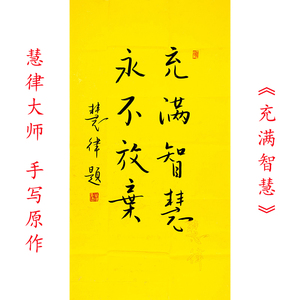 《充满智慧》
充满智慧
永不放棄
慧律題
慧律大师 手写原作